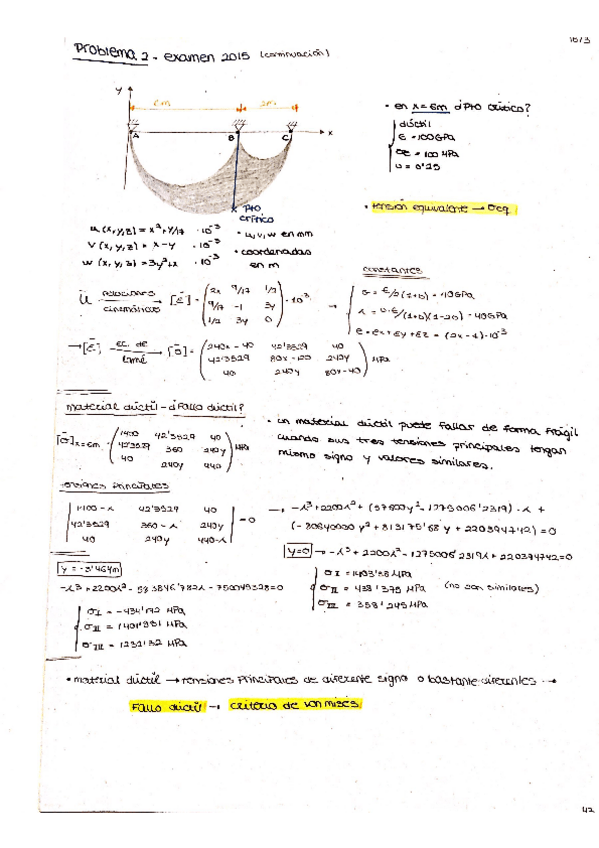 10/3
Problema 2 - examen 2015 (continuación)
y
6m 2m
A B C x
Pto
crítico
• en x = 6m ¿Pto crítico?
dúctil
E = 100 GPa
σe = 100 MPa
υ = 0'25
• tensión equivalente → σeq
u (x,y,z) = x² + y/17 · 10⁻³
v (x,y,z) = x - y · 10⁻³
w (x,y,z) = 3y² + x · 10⁻³
• u, v, w en mm
• coordenadas
en m
constantes
ū relaciones cinemáticas → [ε̄] = (2x 9/17 1/2
9/17 -1 3y
1/2 3y 0) · 10⁻³
→ G = E/2(1+υ) = 40 GPa
λ = υ·E/(1+υ)(1-2υ) = 40 GPa
e = εx + εy + εz = (2x - 1) · 10⁻³
→ [ε̄] ec. de Lamé → [σ̄] = (240x - 40 42'3529 40
42'3529 80x - 120 240y
40 240y 80x - 40) MPa
material dúctil - ¿Fallo dúctil?
[σ̄]x=6m = (1400 42'3529 40
42'3529 360 240y
40 240y 440) MPa
• un material dúctil puede fallar de forma frágil
cuando sus tres tensiones principales tengan
mismo signo y valores similares.
tensiones principales
|1400 - λ 42'3529 40
42'3529 360 - λ 240y
40 240y 440 - λ| = 0
→ -λ³ + 2200λ² + (57600y² - 1275006'2319) · λ +
(-80640000y² + 813175'68y + 220394742) = 0
y=0 → -λ³ + 2200λ² - 1275006'2319λ + 220394742 = 0
σI = 1403'38 MPa
σII = 438'375 MPa (no son similares)
σIII = 358'245 MPa
y = -3'464m
-λ³ + 2200λ² - 583846'782λ - 750049328 = 0
σI = -434'192 MPa
σII = 1401'981 MPa
σIII = 1232'132 MPa
• material dúctil → tensiones principales de diferente signo o bastante diferentes →
Fallo dúctil → criterio de von mises
42